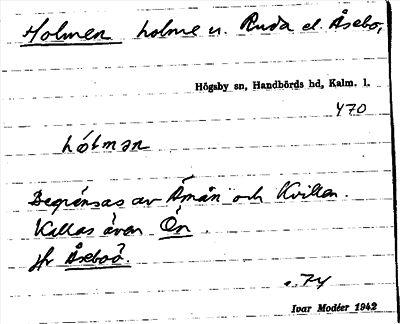 Holmen holme n. Ruda el. Åsebo,
Högsby sn, Handbörds hd, Kalm. l.
470
hólmən
Begränsas av Åmån och Kvillen.
Kallas även Ön.
Jfr Åseboö.
s. 74
Ivar Modéer 1942